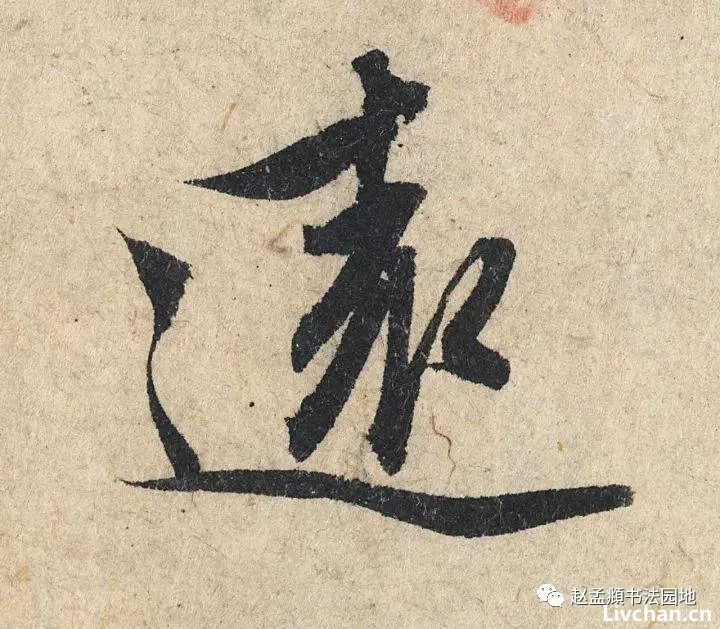 遠
赵孟頫书法园地
Livchan.cn